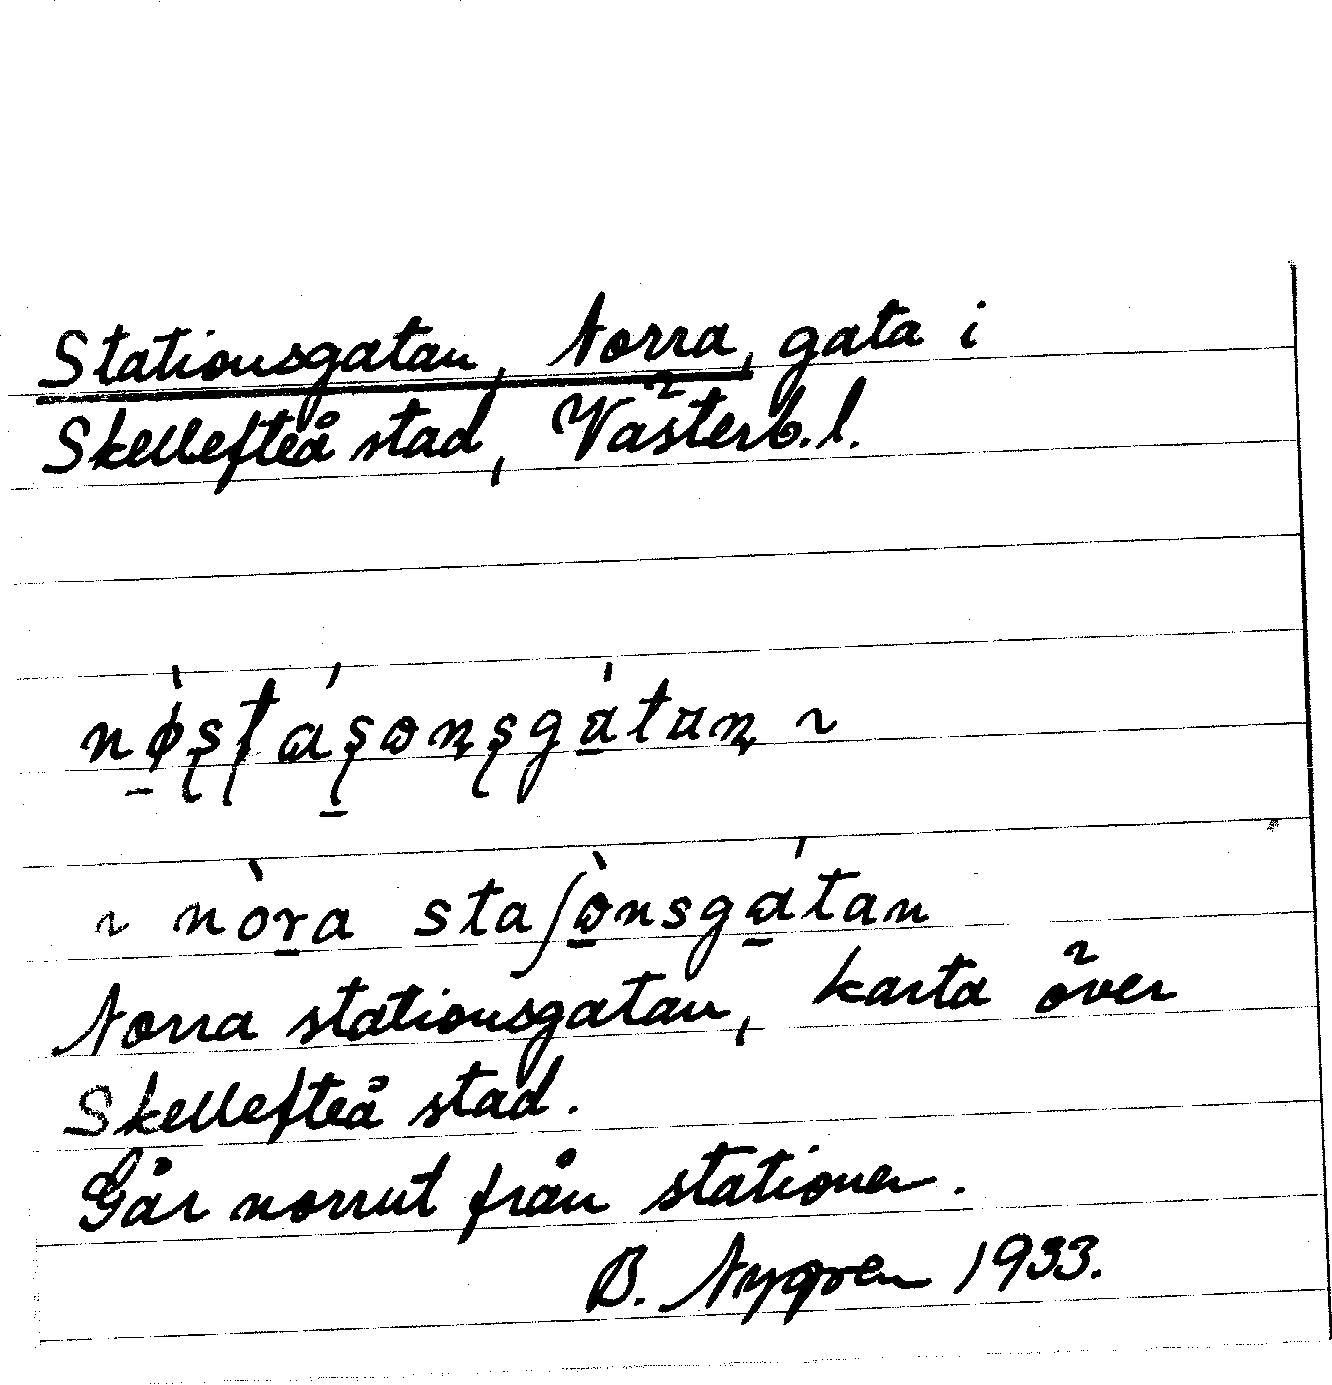 Stationsgatan, Norra, gata i
Skellefteå stad, Västerb. l.
nø̀ʂʈáʂωɳʂgátaɳ ~
~ nòra staʃὼnsgátan
Norra stationsgatan, karta över
Skellefteå stad.
Går norrut från stationen.
B. Nygren 1933.